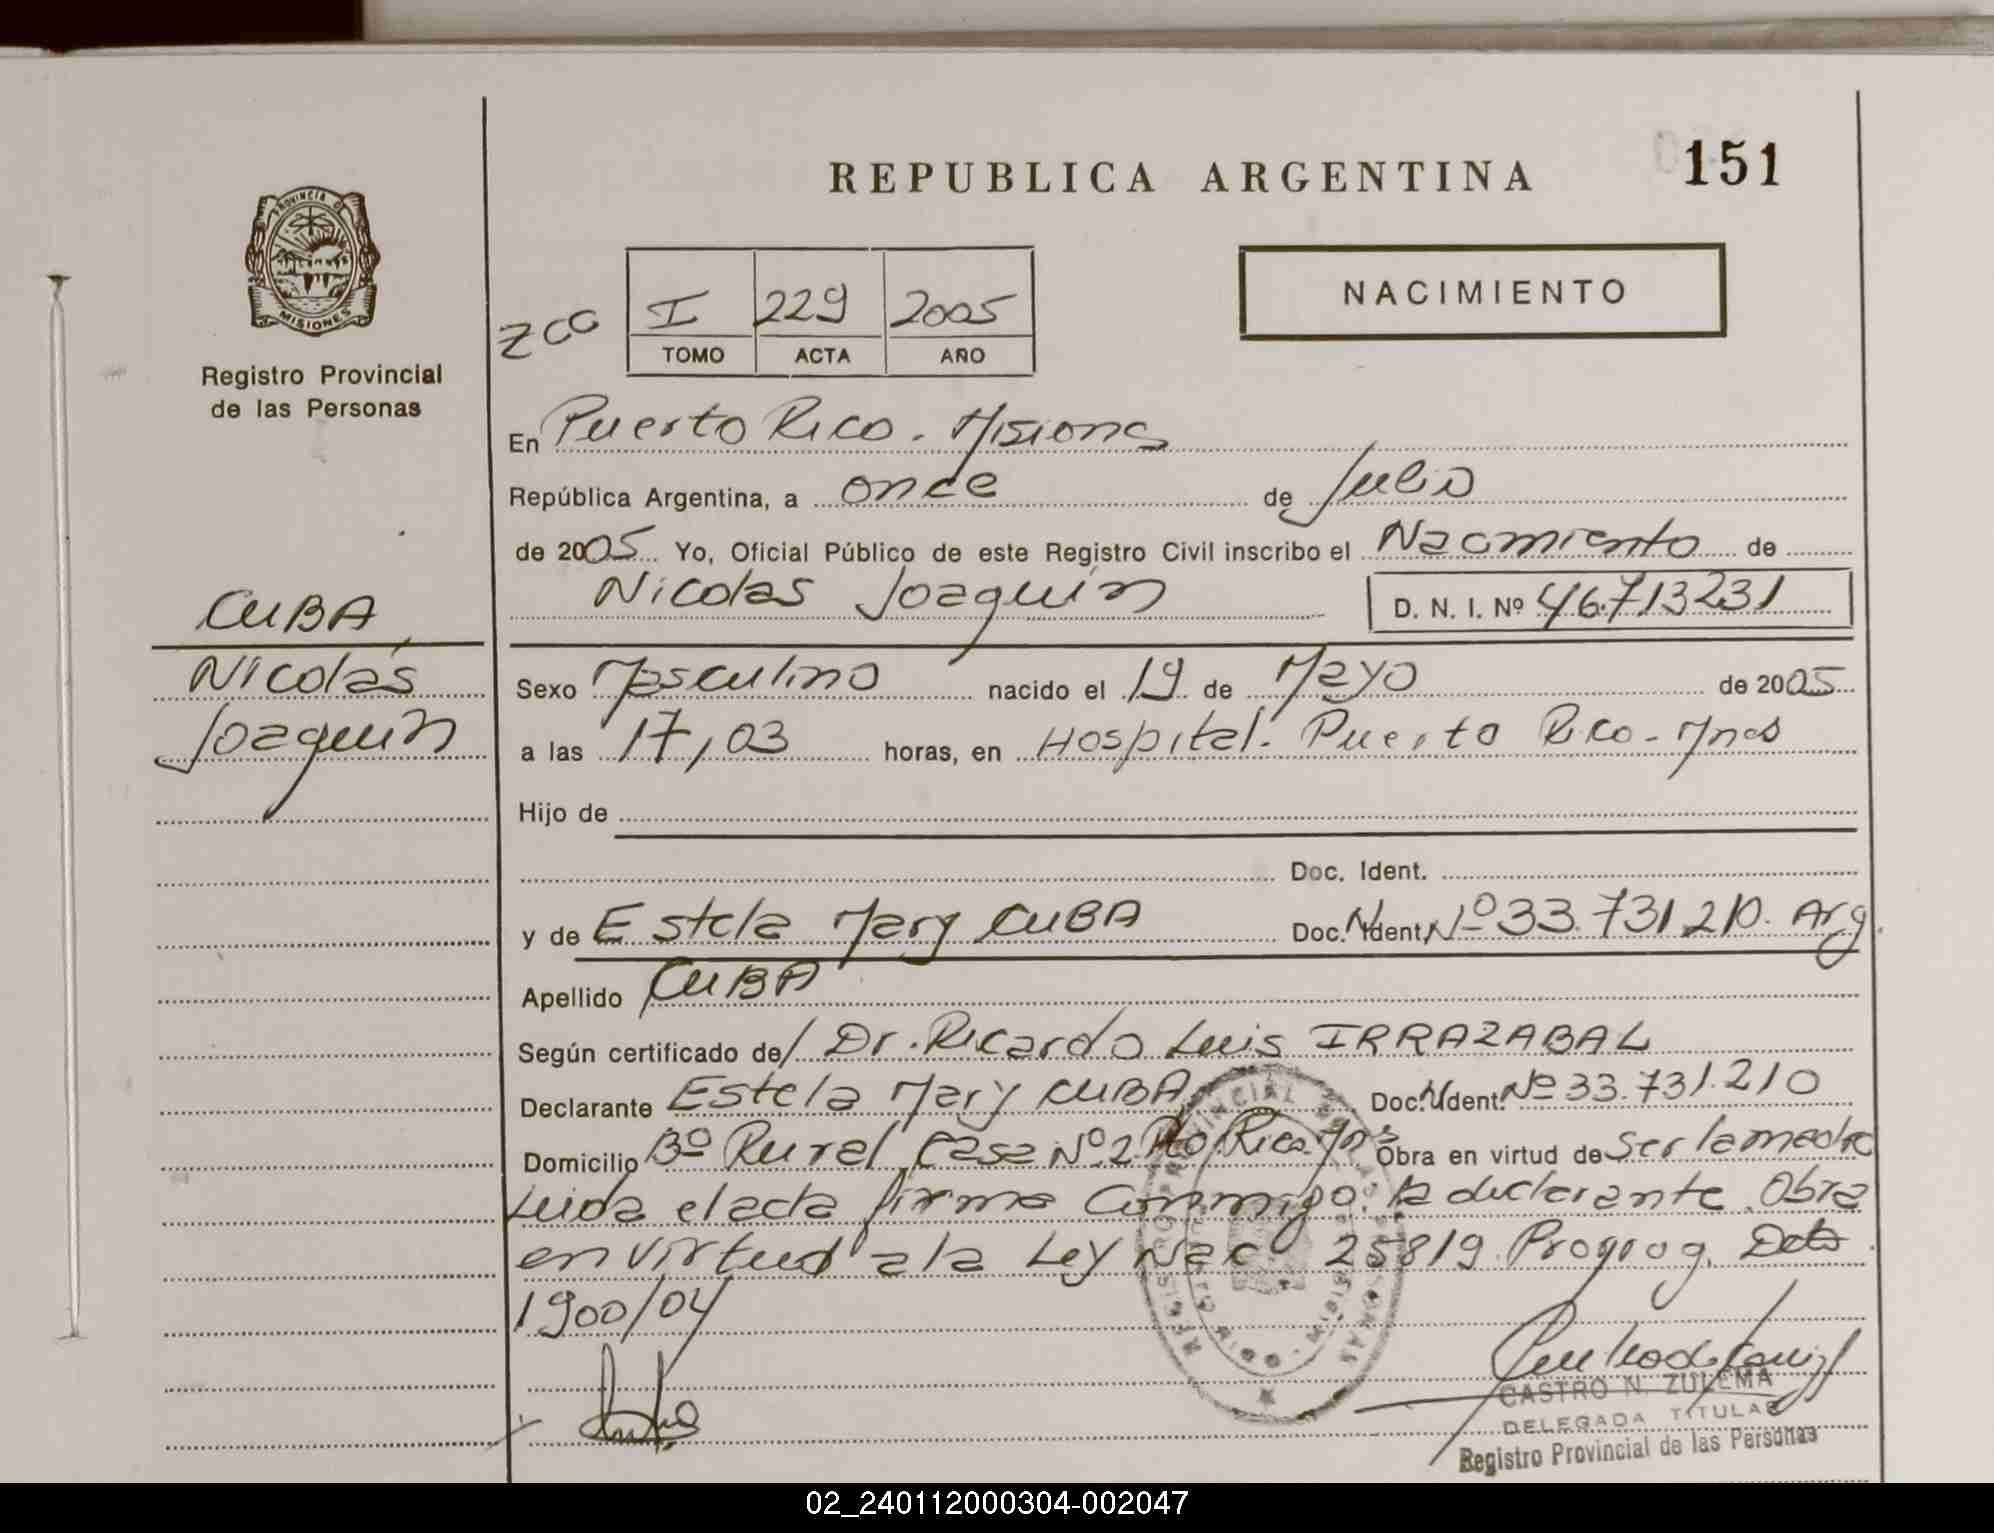 REPUBLICA ARGENTINA
151
PROVINCIA DE
MISIONES
Registro Provincial
de las Personas
NACIMIENTO
I 229 2005
TOMO ACTA AÑO
En Puerto Rico. Misiones
República Argentina, a once de Julio
de 2005 Yo, Oficial Público de este Registro Civil inscribo el Nacimiento de
Nicolas Joaquín D. N. I. Nº 46.713231
CUBA
Nicolás
Joaquín
Sexo Masculino nacido el 19 de Mayo de 2005
a las 17,03 horas, en Hospital. Puerto Rico - Mnes
Hijo de
Doc. Ident.
y de Estela Mary CUBA Doc. Ident. Nº 33.731.210. Arg.
Apellido CUBA
Según certificado de/ Dr. Ricardo Luis IRRAZABAL
Declarante Estela Mary CUBA Doc. Ident. Nº 33.731.210
Domicilio Bº Rural Casa Nº 2 Pto Rico. Mnes Obra en virtud de Ser la madre
Leida el acta firma Conmigo: la declarante. Obra
en virtud a la Ley Nac 25819 Prorrog. Dcto
1900/04
REGISTRO PROVINCIAL DE LAS PERSONAS
CASTRO N. ZULEMA
DELEGADA TITULAR
Registro Provincial de las Personas
02_240112000304-002047